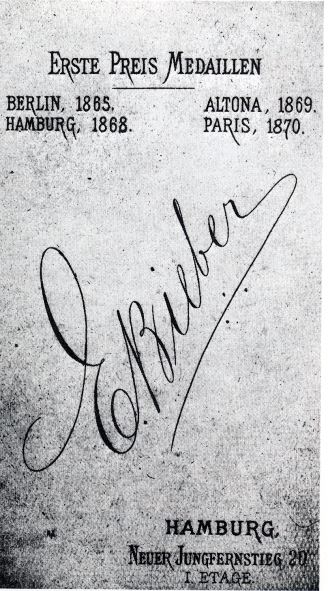 ERSTE PREIS MEDAILLEN
BERLIN, 1865. ALTONA, 1869.
HAMBURG, 1868. PARIS, 1870.
E. Bieber
HAMBURG,
NEUER JUNGFERNSTIEG 20
I. ETAGE.